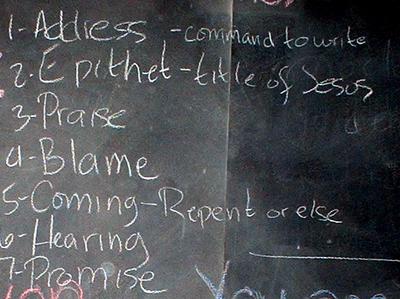 1-Address - command to write
2. Epithet - title of Jesus
3-Praise
4-Blame
5-Coming - Repent or else
6-Hearing
7-Promise